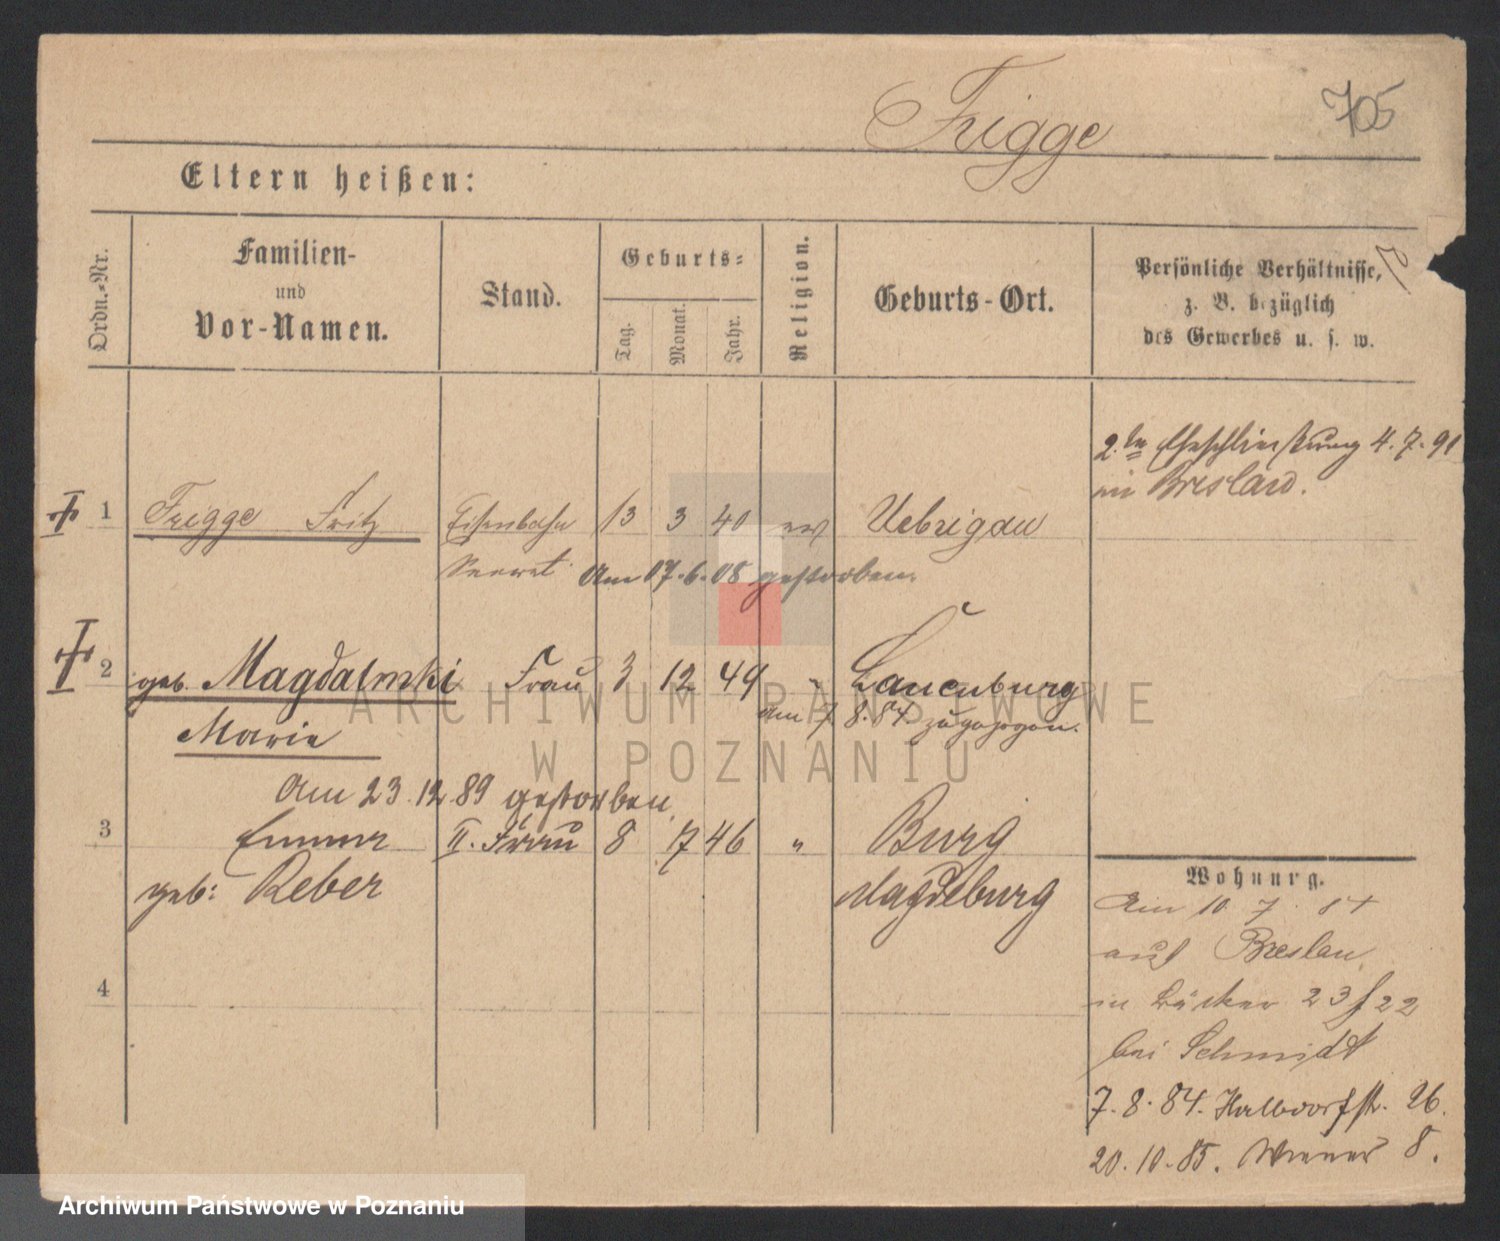 Frigge
705
Eltern heißen:
Ordn.-Nr.
Familien-
und
Vor-Namen.
Stand.
Geburts-
Tag.
Monat.
Jahr.
Religion.
Geburts-Ort.
Persönliche Verhältnisse,
z. B. bezüglich
des Gewerbes u. s. w.
2. te Eheschließung 4.7.91
in Breslau.
1 Frigge Fritz Eisenbahn 13 3 40 ev Uebrigau
Secret. Am 07.6.08 gestorben.
2 geb. Magdalinski Frau 3 12 49 " Lauenburg
Marie
am 7. 8. 84. zugezogen.
Am 23.12.89 gestorben
3 Emma II. Frau 8 7 46 " Burg
geb: Reber Magdeburg
4
Wohnung.
Am 10 7. 84
aus Breslau
in Bäcker 23
bei Schmidt
7. 8. 84. Halbdorfstr. 26.
20. 10. 85. Wiener 8.
ARCHIWUM PAŃSTWOWE
W POZNANIU
Archiwum Państwowe w Poznaniu